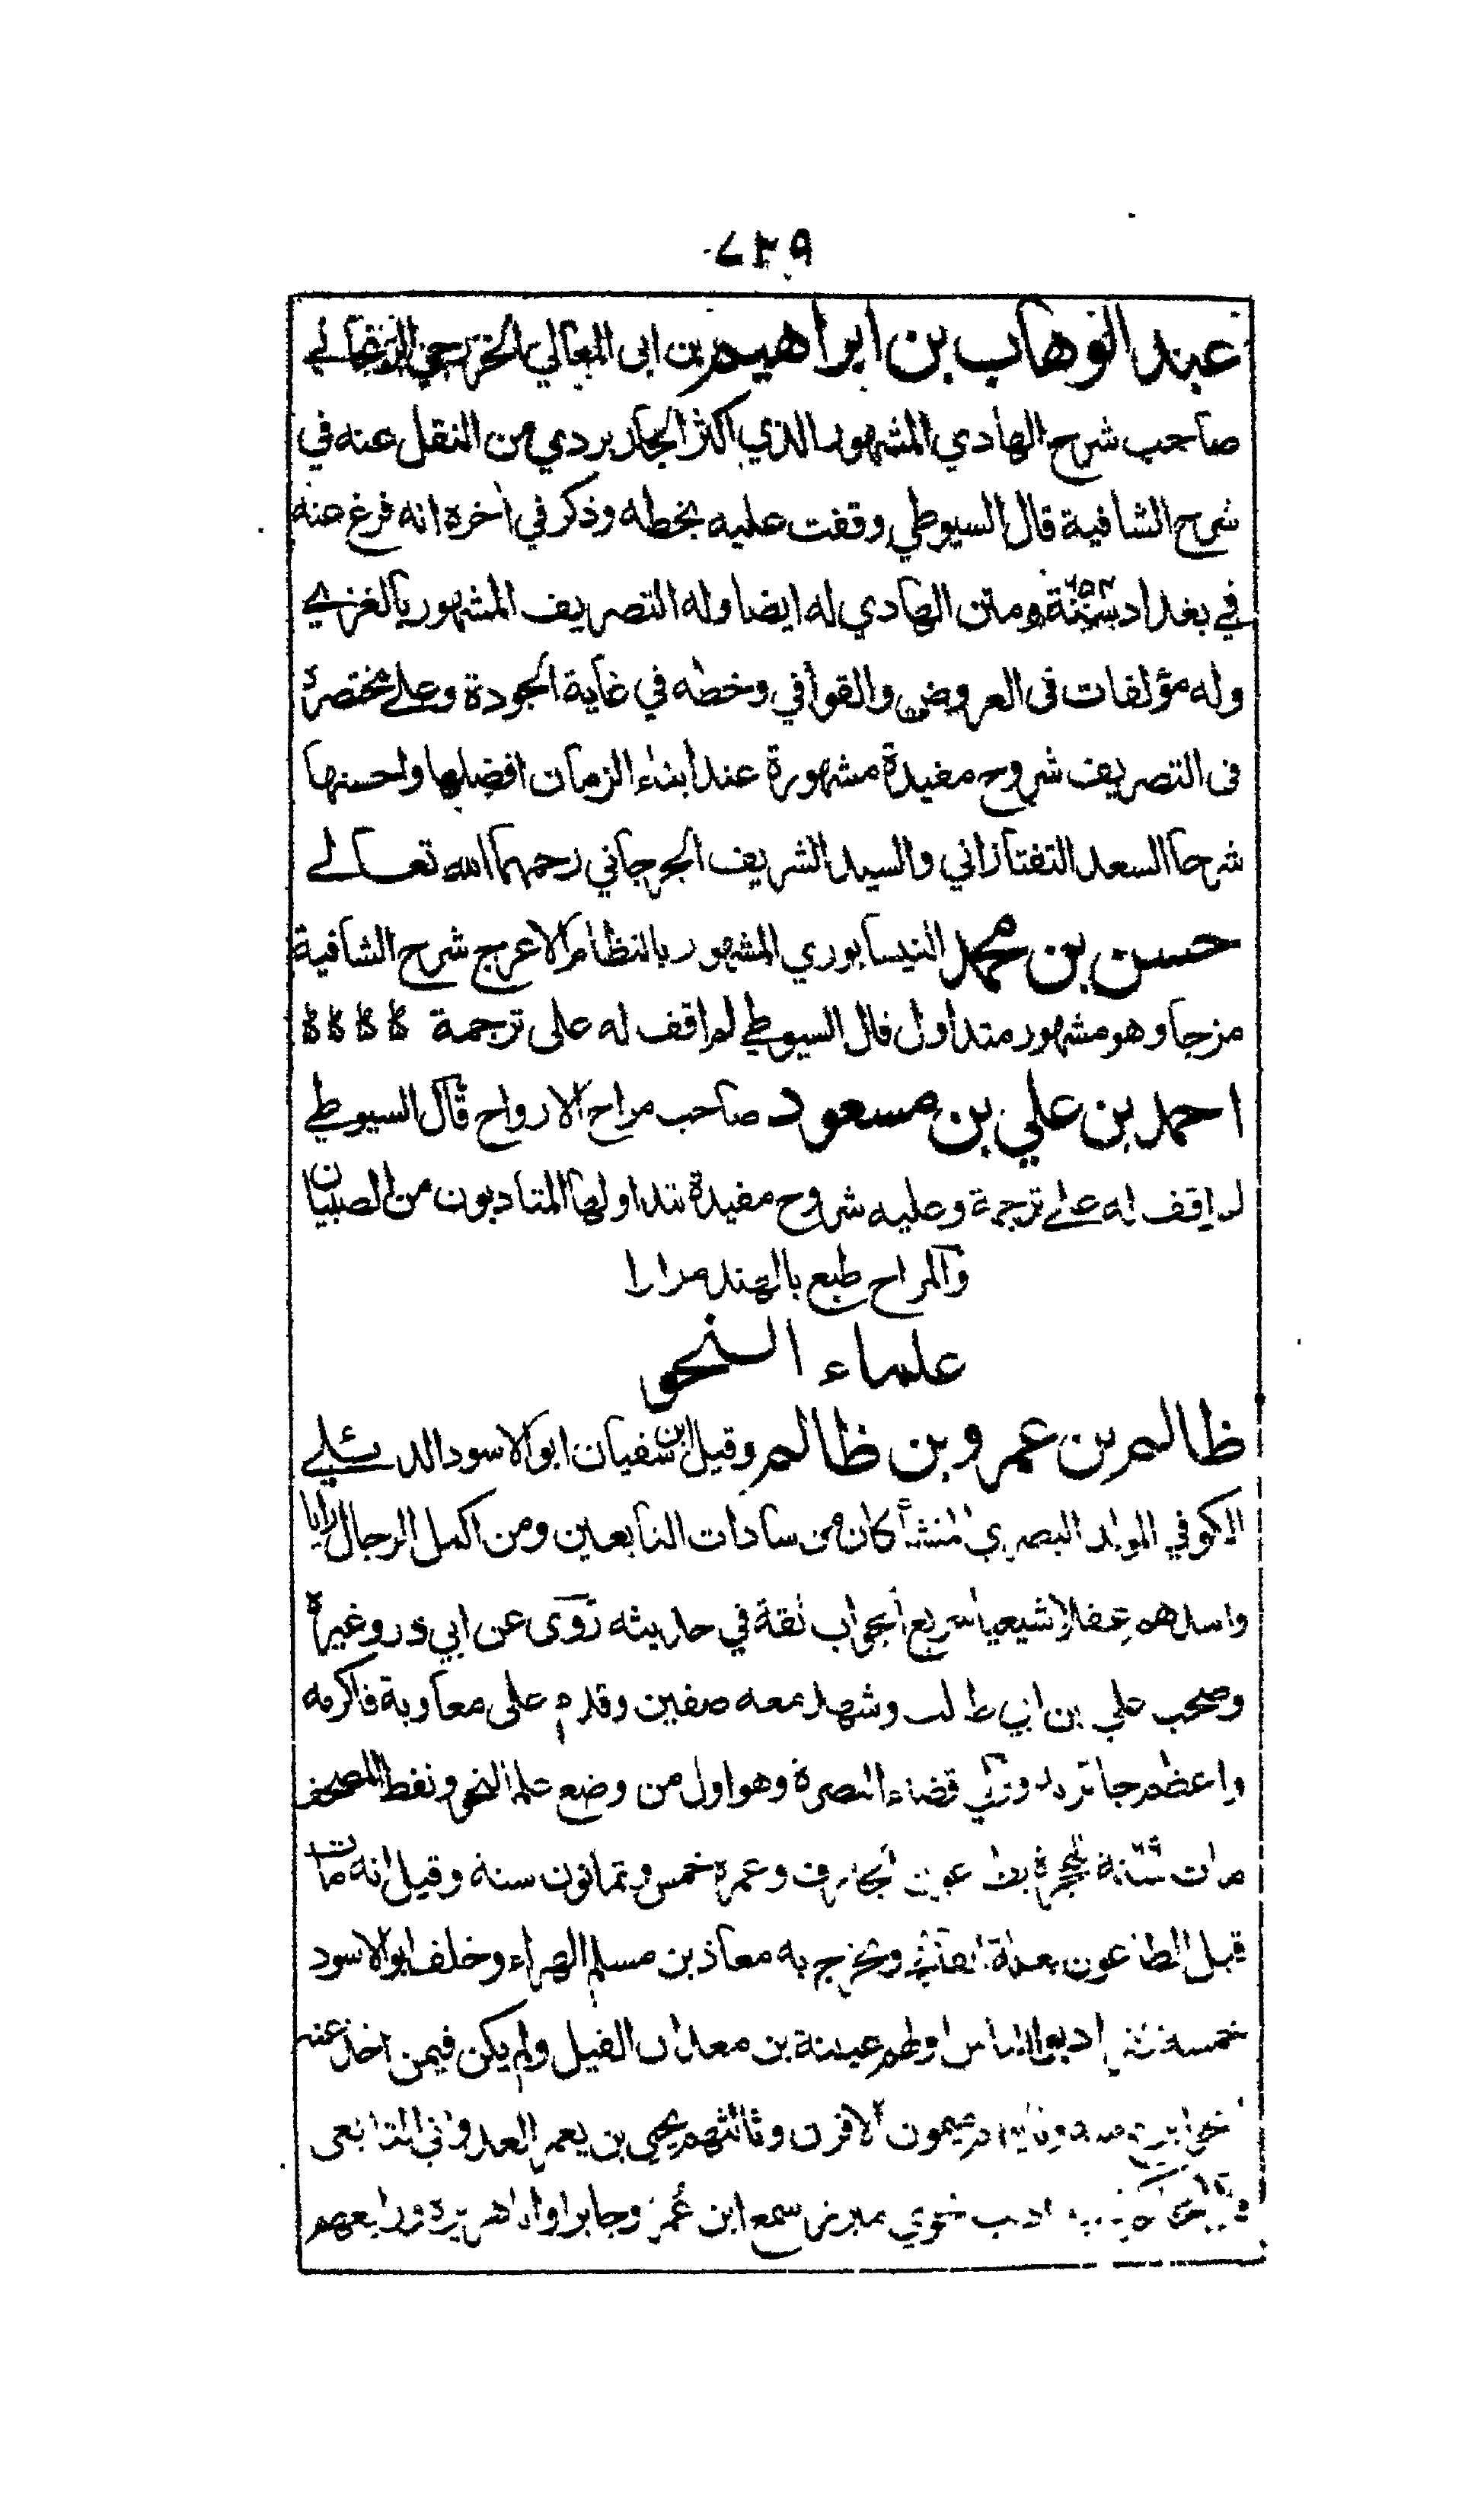 عبد الوهاب بن ابراهيم بن ابى المعالي الخزرجي الزنجاني
صاحب شرح الهادي المشهور الذي اكثر الجاربردي من النقل عنه في
شرح الشافية قال السيوطي وقفت عليه بخطه وذكر في اخره انه فرغ منه
في بغداد سنة ومتن الهادي له ايضا وله التصريف المشهور بالغزي
وله مؤلفات فى العروض والقوافي وخطه في غاية الجودة وعلى مختصره
فى التصريف شروح مفيدة مشهورة عند ابناء الزمان افضلها واحسنها
شرحا السعد التفتازاني والسيد الشريف الجرجاني رحمهما الله تعالى
حسن بن محمد النيسابوري المشهور بالنظام الاعرج شرح الشافية
مزجا وهو مشهور متداول قال السيوطي لم اقف له على ترجمة
احمد بن علي بن مسعود صاحب مراح الارواح قال السيوطي
لم اقف له على ترجمة وعليه شروح مفيدة تتداولها المتادبون من الصبيان
والمراح طبع بالهند مرارا
علماء النحو
ظالم بن عمرو بن ظالم وقيل ابن سفيان ابو الاسود الدئلي
الكوفي المولد البصري المنشأ كان من سادات التابعين ومن اكمل الرجال رايا
واسدهم عقلا شيعيا سريع الجواب ثقة في حديثه روى عن ابي ذر وغيره
وصحب علي بن ابي طالب وشهد معه صفين وقدم على معاوية فاكرمه
واعظم جائزته وولي قضاء البصرة وهو اول من وضع علم النحو ونقط المصحف
مات للهجرة بطاعون الجارف وعمره خمس وثمانون سنة وقيل انه مات
قبل الطاعون بعلة الفالج وتخرج به معاذ بن مسلم الهراء وخلف ابو الاسود
خمسة اولهم عيينة بن معدان الفيل ولم يكن فيمن اخذ عنه
ميمون الاقرن وثالثهم يحيى بن يعمر العدواني التابعي
اديب نحوي مبرز سمع ابن عمر وجابرا وابا هريرة ورابعهم